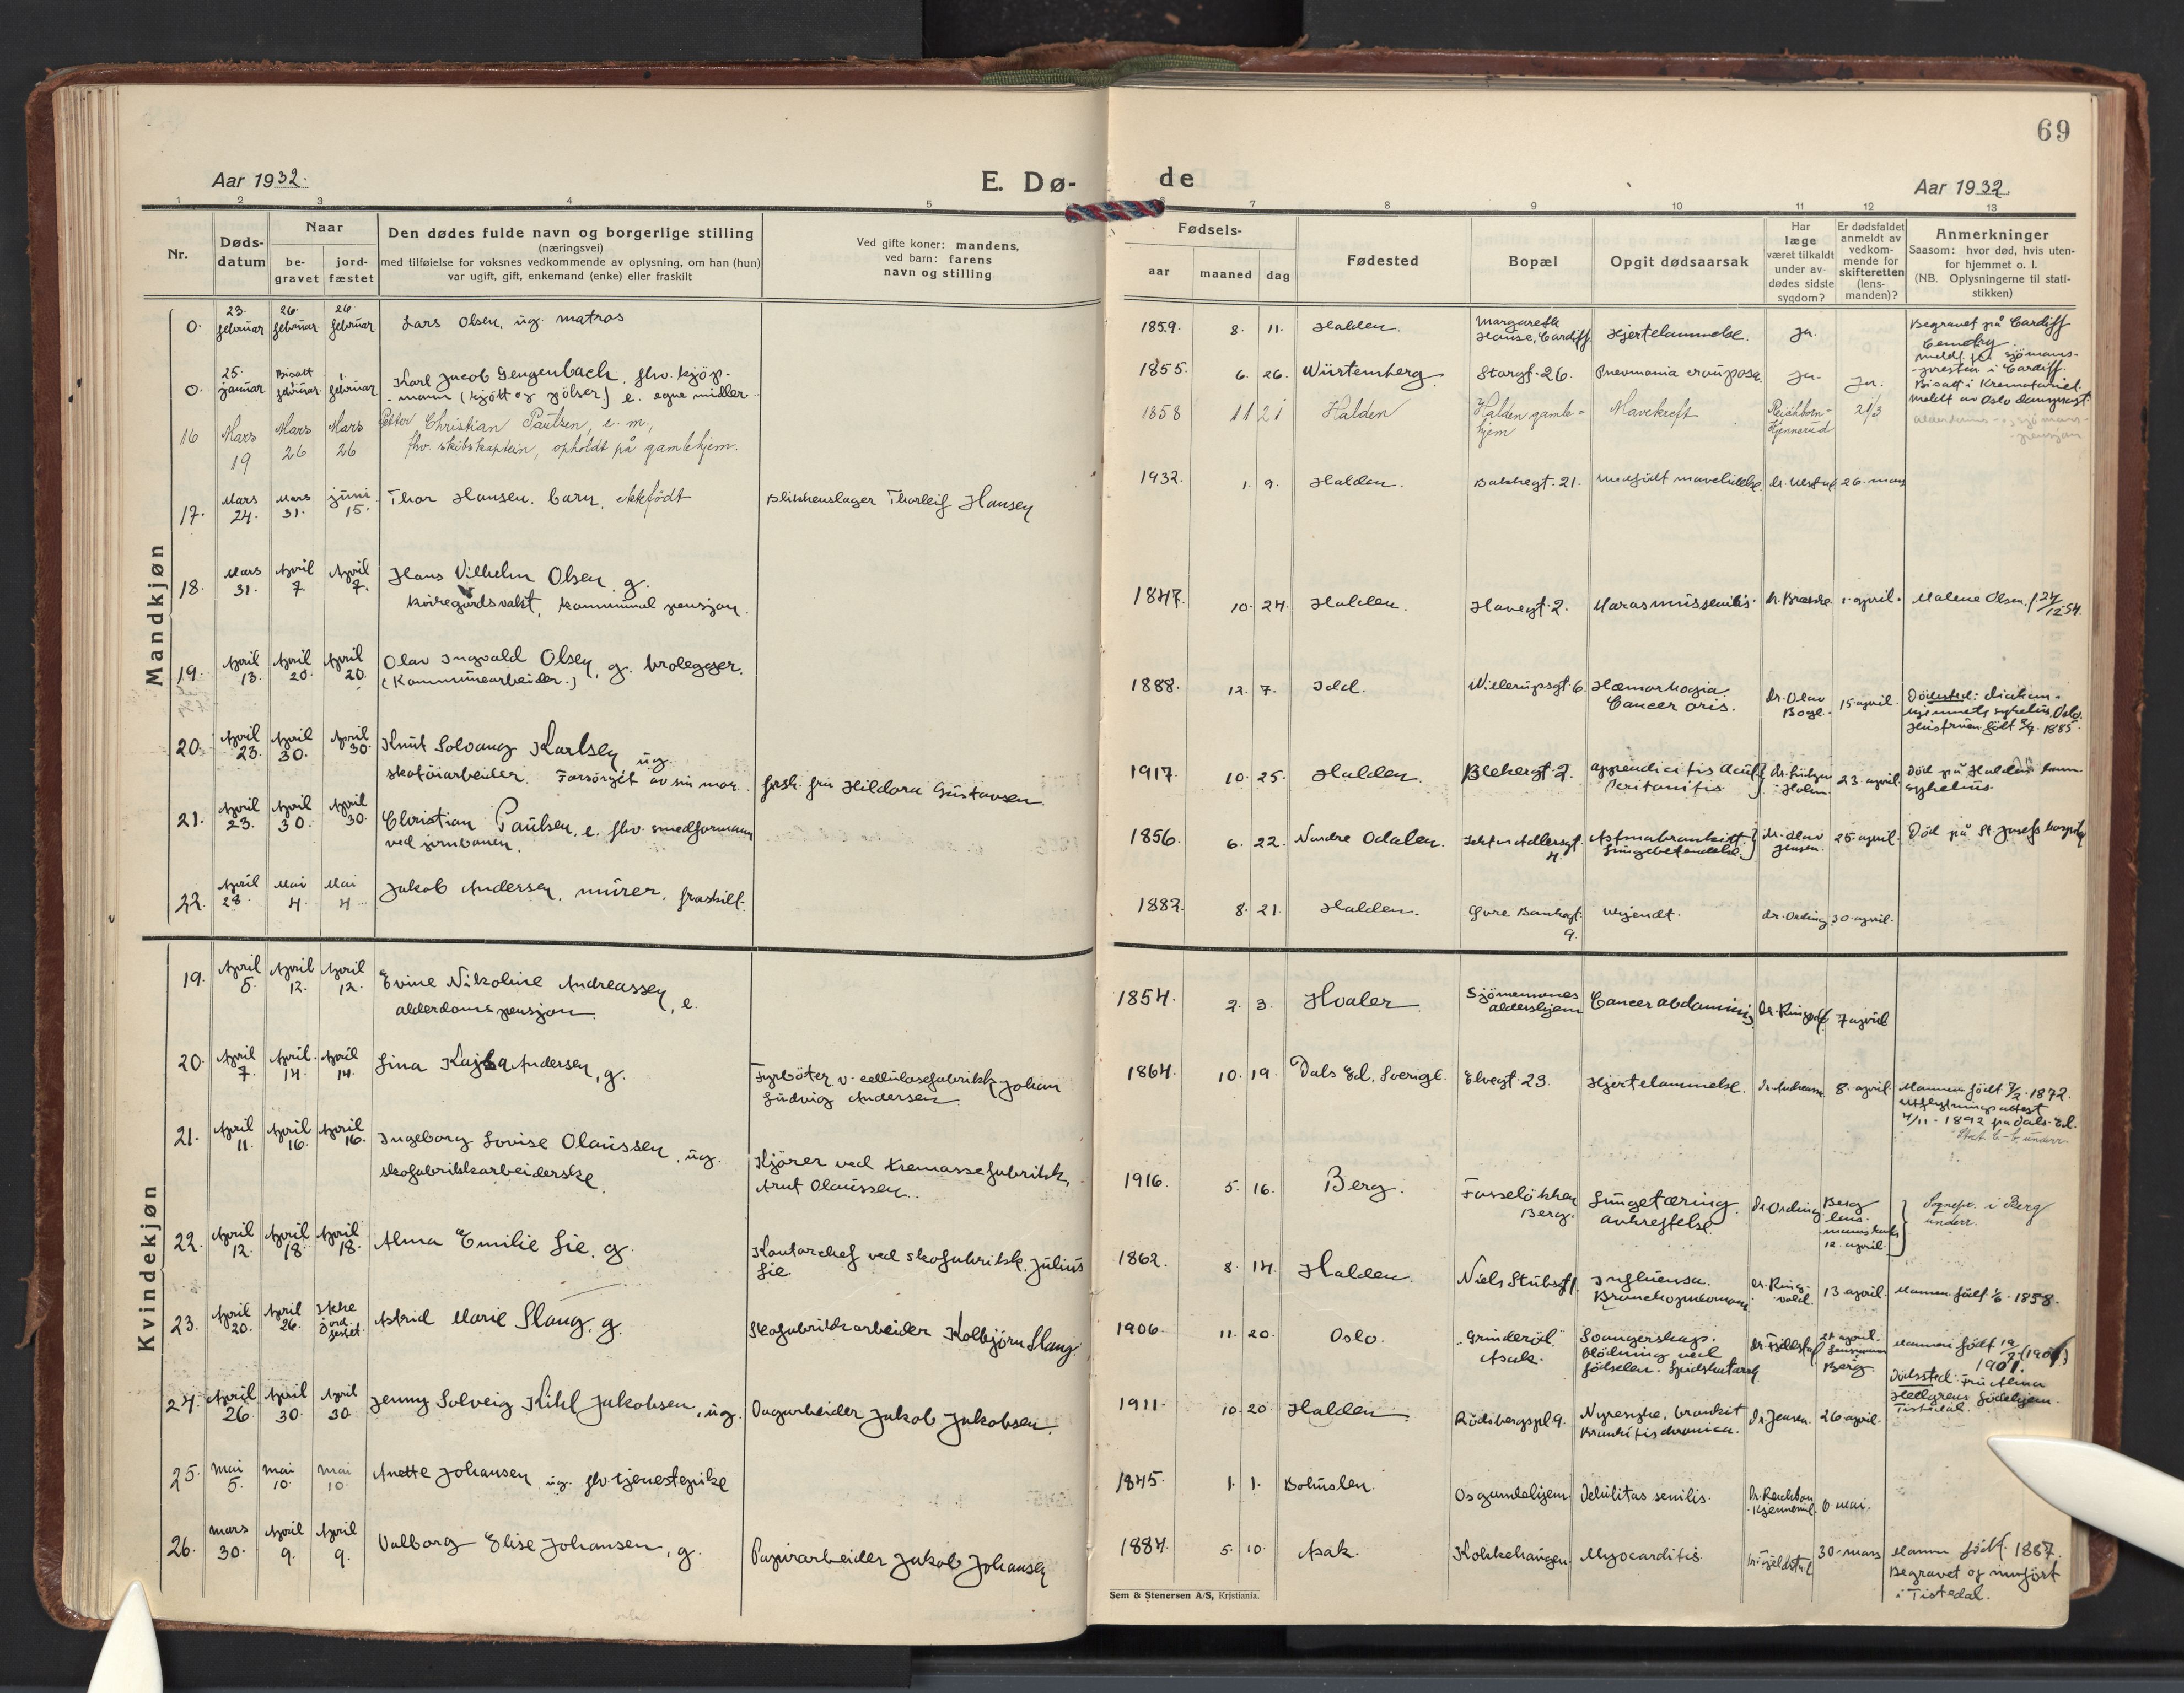 69
Aar 1932.
E. Dø-
de
Aar 1932.
1 2 3 4 5 6 7 8 9 10 11 12 13
Nr.
Døds-
datum
Naar
be-
gravet
jord-
fæstet
Den dødes fulde navn og borgerlige stilling
(næringsvei)
med tilføielse for voksnes vedkommende av oplysning, om han (hun)
var ugift, gift, enkemand (enke) eller fraskilt
Ved gifte koner: mandens,
ved barn: farens
navn og stilling
Fødsels-
aar maaned dag
Fødested
Bopæl
Opgit dødsaarsak
Har
læge
været tilkaldt
under av-
dødes sidste
sygdom?
Er dødsfaldet
anmeldt av
vedkom-
mende for
skifteretten
(lens-
manden)?
Anmerkninger
Saasom: hvor død, hvis uten-
for hjemmet o. l.
(NB. Oplysningerne til stati-
stikken)
Mandkjøn
0. 23. februar 26. februar 26 februar Lars Olsen, ug. matros
1859. 8. 11. Halden. Margareth
House, Cardiff. Hjertelammelse. Ja.
Begravet på Cardiff
meldt fra sjömans-
presten i Cardiff.
0. 25. januar Bisatt 1. februar 1. februar Karl Jacob Gengenbach, fhv. kjöp-
mann (kjött og pölser) e. egne midler.
1855. 6. 26. Würtemberg. Storgt. 26. Pneumonia crouposa. Ja. Ja.
Bisatt i Krematoriet.
meldt av Oslo domprost.
16 Mars 19 Mars 26 Mars 26 Petter Christian Paulsen, e. m.,
fhv. skibskaptein, opholdt på gamlehjem.
1858 11 21 Halden Halden gamle-
hjem Mavekreft Reichborn-
Kjennerud 21/3
alderdoms- og sjömans-
pensjon
17. Mars 24. Mars 31. juni 15. Thor Hansen. barn, ektefödt
Blikkenslager Thorleif Hansen
1932. 1. 9. Halden. Bakkegt. 21. medfödt mavelidelse. 26. mars
18. Mars 31. April 7. April 7. Hans Vilhelm Olsen, g.
kirkegårdsvakt, kommunal pensjon.
1847. 10. 24. Halden. Havegt. 2. Marasmus senilis. 1. april. Malene Olsen, f. 24/12-54.
19. April 13. April 20. April 20. Olav Ingvald Olsen, g. brolegger.
(Kommunearbeider.)
1888. 12. 7. Idd. Willerupsgt. 6. Hæmorhagia.
Cancer oris. dr. Olav
Boge. 15 april. Dödssted: diakon-
hjemmets sykehus, Oslo.
Hustruen född 5/4. 1885.
20. April 23. April 30. April 30. Knut Solvang Karlsen, ug.
skotöiarbeider. Forsörget av sin mor. frask. fru Hildora Gustavsen
1917. 10. 25. Halden. Blekergt. 2. appendicitis acut.
Peritonitis. 23. april. Död på Halden kom.
sykehus.
21. April 23. April 30. April 30. Christian Paulsen, e. fhv. smedformann
ved jernbanen.
1856. 6. 22. Nordre Odalen. 4. Astmabronkitt.
Lungebetendelse. dr. Olav
Jensen. 25. april. Död på St. Josefs hospital
22. April 28. Mai 4. Mai 4. Jakob Andersen, murer, fraskilt.
1882. 8. 21. Halden. Övre Bankgt.
9. ukjendt. dr. Ording. 30. april.
Kvindekjøn
19. April 5. April 12. April 12. Evine Nikoline Andreassen, e.
alderdomspensjon.
1854. 2. 3. Hvaler. Sjömennenes
aldershjem Cancer abdominis. 7 april
20. April 7. April 14. April 14. Lina Kajsa Andersen, g.
Fyrböter v. cellulosefabrikk Johan
Ludvig Andersen.
1864. 10. 19. Dals Ed, Sverige. Elvegt. 23. Hjertelammelse. 8. april Mannen födt 7/2. 1872.
Utflytningsattest
4/11-1892 fra Dals-Ed.
21. April 11. April 16. April 16. Ingeborg Lovise Olaussen, ug.
skofabrikkarbeiderske.
Kjörer ved tremassefabrikk,
Arnt Olaussen.
1916. 5. 16. Berg. Fosselökken
Berg. Lungetæring.
avkreftelse. Dr. Ording. Berg
lens-
mannskontor
12. april. Sognepr. i Berg
underr.
22. April 12. April 18. April 18. Alma Emilie Lie, g.
Kontorchef ved skofabrikk, Julius
Lie.
1862. 8. 14. Halden. Niels Stubsgt 1. Influensa.
Bronchopneumoni dr. Ring-
vold. 13 april. Mannen födt 1/6. 1858.
23. April 20. April 26. Ikke
jord-
festet. Astrid Marie Slang, g.
Skofabrikkarbeider Kolbjörn Slang.
1906. 11. 20. Oslo. "Grinderöd"
Asak. Svangerskap.
Blödning ved
födselen. 21. april.
Lensmannen
Berg. Mannen födt 19/2 (1901)
1901.
Dödssted: Fru Alma
Hellgrens födehjem.
Tistedal.
24. April 26. April 30. April 30. Jenny Solveig Kihl Jakobsen, ug.
Dagarbeider Jakob Jakobsen.
1911. 10. 20. Halden. Rödsbergspl. 9. Nyresyke, bronkit
Bronkitis chronica. Dr. Jensen. 26 april.
25. Mai 5. Mai 10. Mai 10. Anette Johansen, ug. fhv. tjenestepike
1845. 1. 1. Bohuslen. Os gamlehjem. Debilitas senilis. Dr. Reichborn
Kjennerud. 6 mai.
26. Mars 30. April 9. April 9. Valborg Elise Johansen, g.
Papirarbeider Jakob Johansen
1884. 5. 10. Asak. Kokkehaugen. Myocarditis. 30. mars Mannen födt 1887.
Begravet og innfört
i Tistedal.
Sem & Stenersen A/S, Kristiania.